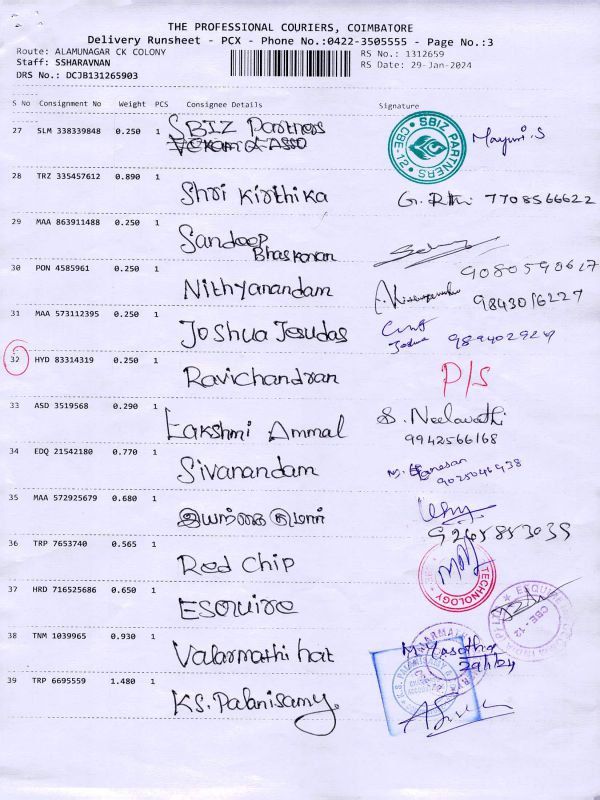 THE PROFESSIONAL COURIERS, COIMBATORE
Delivery Runsheet - PCX - Phone No.:0422-3505555 - Page No.:3
Route: ALAMUNAGAR CK COLONY RS No.: 1312659
Staff: SSHARAVNAN RS Date: 29-Jan-2024
DRS No.: DCJB131265903
S No Consignment No Weight PCS Consignee Details Signature
27 SLM 338339848 0.250 1 SBIZ Partners
SBIZ PARTNERS CBE-12
28 TRZ 335457612 0.890 1 Shri Kirthika 7708566622
29 MAA 863911488 0.250 1 Sandeep
Bhaskaran
9080590617
30 PON 4585961 0.250 1 Nithyanandam 9843016227
31 MAA 573112395 0.250 1 Joshua Jesudas
Joshua 9894029249
32 HYD 83314319 0.250 1 Ravichandran P/S
33 ASD 3519568 0.290 1 Lakshmi Ammal S. Neelavathi
9942566168
34 EDQ 21542180 0.770 1 Sivanandam
9025046438
35 MAA 572925679 0.680 1 இயற்கை குமார்
9265853039
36 TRP 7653740 0.565 1 Red Chip
TECHNOLOGY
37 HRD 716525686 0.650 1 Esquire
CBE - 12
38 TNM 1039965 0.930 1 Valarmathi hat M. Yasotha
39 TRP 6695559 1.480 1 K.S. Palanisamy.